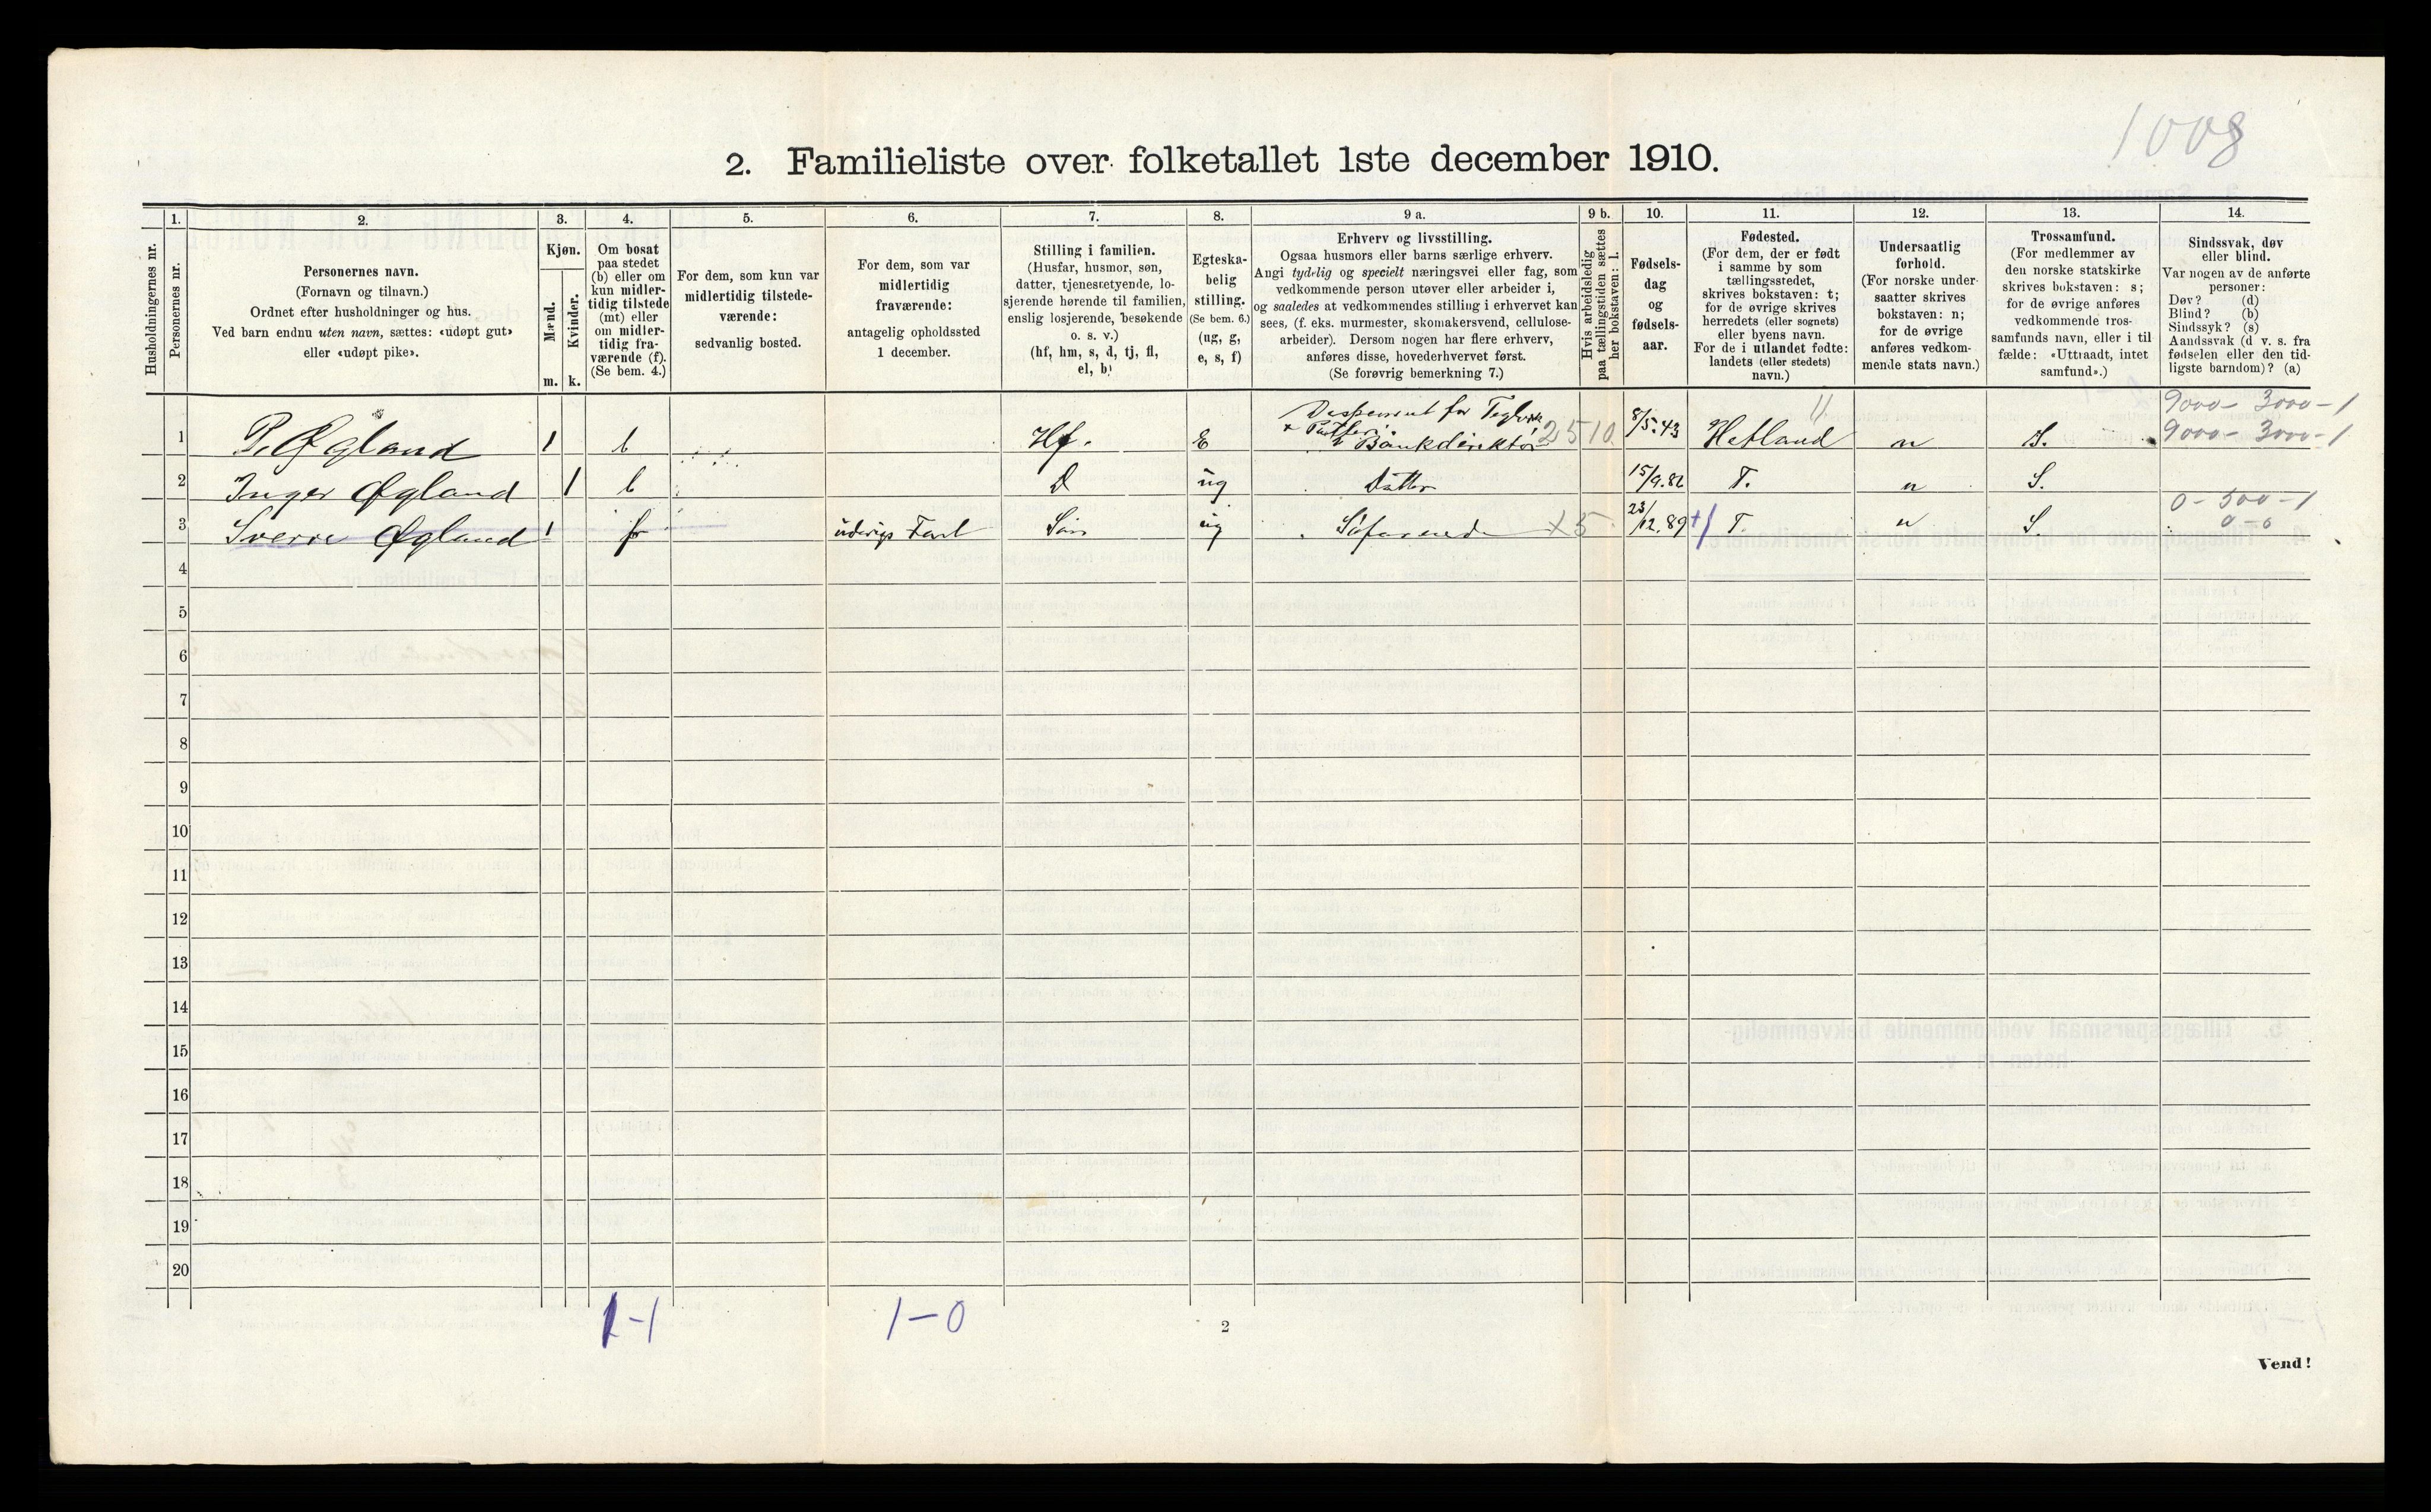 1008
2. Familieliste over folketallet 1ste december 1910.
Husholdningernes nr.
1.
Personernes nr.
2.
Personernes navn.
(Fornavn og tilnavn.)
Ordnet efter husholdninger og hus.
Ved barn endnu uten navn, sættes: «udøpt gut»
eller «udøpt pike».
3.
Kjøn.
Mænd.
Kvinder.
m. k.
4.
Om bosat
paa stedet
(b) eller om
kun midler-
tidig tilstede
(mt) eller
om midler-
tidig fra-
værende (f).
(Se bem. 4.)
5.
For dem, som kun var
midlertidig tilstede-
værende:
sedvanlig bosted.
6.
For dem, som var
midlertidig
fraværende:
antagelig opholdssted
1 december.
7.
Stilling i familien.
(Husfar, husmor, søn,
datter, tjenestetyende, lo-
sjerende hørende til familien,
enslig losjerende, besøkende
o. s. v.)
(hf, hm, s, d, tj, fl,
el, b)
8.
Egteska-
belig
stilling.
(Se bem. 6.)
(ug, g,
e, s, f)
9 a.
Erhverv og livsstilling.
Ogsaa husmors eller barns særlige erhverv.
Angi tydelig og specielt næringsvei eller fag, som
vedkommende person utøver eller arbeider i,
og saaledes at vedkommendes stilling i erhvervet kan
sees, (f. eks. murmester, skomakersvend, cellulose-
arbeider). Dersom nogen har flere erhverv,
anføres disse, hovederhvervet først.
(Se forøvrig bemerkning 7.)
9 b.
Hvis arbeidsledig
paa tællingstiden sættes
her bokstaven: l.
10.
Fødsels-
dag
og
fødsels-
aar.
11.
Fødested.
(For dem, der er født
i samme by som
tællingsstedet,
skrives bokstaven: t;
for de øvrige skrives
herredets (eller sognets)
eller byens navn.
For de i utlandet fødte:
landets (eller stedets)
navn.)
12.
Undersaatlig
forhold.
(For norske under-
saatter skrives
bokstaven: n;
for de øvrige
anføres vedkom-
mende stats navn.)
13.
Trossamfund.
(For medlemmer av
den norske statskirke
skrives bokstaven: s;
for de øvrige anføres
vedkommende tros-
samfunds navn, eller i til
fælde: «Uttraadt, intet
samfund».)
14.
Sindssvak, døv
eller blind.
Var nogen av de anførte
personer:
Døv? (d)
Blind? (b)
Sindssyk? (s)
Aandssvak (d v. s. fra
fødselen eller den tid-
ligste barndom)? (a)
9000 - 3000 - 1
1 P. Øgland 1 b Hf. E Bankdirektør 2510 8/5.43 Hetland n S. 9000 - 3000 - 1
2 Inger Øgland 1 b D ug Datter 15/9.82 T. n S.
0 - 500 - 1
3 Sverre Øgland 1 f Søn ug Søfarende x5 23/12.89 T. n S. 0 - 0
4
5
6
7
8
9
10
11
12
13
14
15
16
17
18
19
20
1-1 1-0
2
Vend!